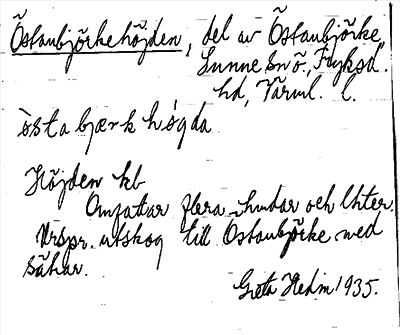 Östanbjörkehöjden, del av Östanbjörke,
Sunne snö, Fryksd.
hd, Värml. l.
òsta bjærk hǿgda
Höjden kb
Omfattar flera hemdar och lhter.
Urspr. utskog till Östanbjörke med
sätrar.
Greta Hedin 1935.